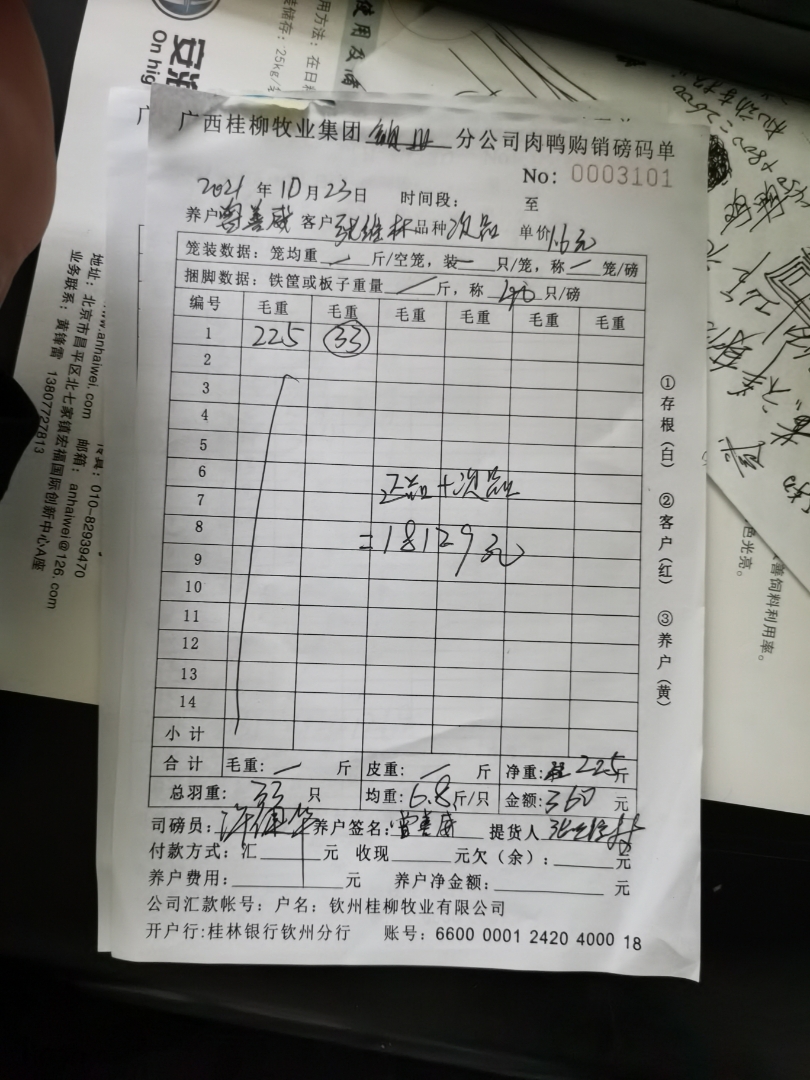 广西桂柳牧业集团 分公司肉鸭购销磅码单
No: 0003101
2021年10月23日 时间段: 至
养户曾善威 客户张维林 品种次品 单价1.6元
笼装数据: 笼均重 / 斤/空笼, 装 / 只/笼, 称 / 笼/磅
捆脚数据: 铁筐或板子重量 / 斤, 称 只/磅
编号 毛重 毛重 毛重 毛重 毛重 毛重
1 225 33
2
3
4
5
6
正品+次品
7
8
=18129元
9
10
11
12
13
14
小计
合计 毛重: / 斤 皮重: / 斤 净重: 225斤
总羽重: 33 只 均重: 6.8斤/只 金额: 360 元
司磅员: 养户签名: 曾善威 提货人 张维林
付款方式: 汇 元 收现 元欠(余): 元
养户费用: 元 养户净金额: 元
公司汇款帐号: 户名: 钦州桂柳牧业有限公司
开户行:桂林银行钦州分行 账号: 6600 0001 2420 4000 18
①存根(白) ②客户(红) ③养户(黄)
On hig
使用
用方法: 在日
储存: 25kg/
地址: 北京市昌平区北七家镇宏福国际创新中心A座
业务联系: 黄锋雷 13807727813
www.anhaiwei.com 邮箱: anhaiwei@126.com
真: 010-82939470
善饲料利用率。
色光亮。